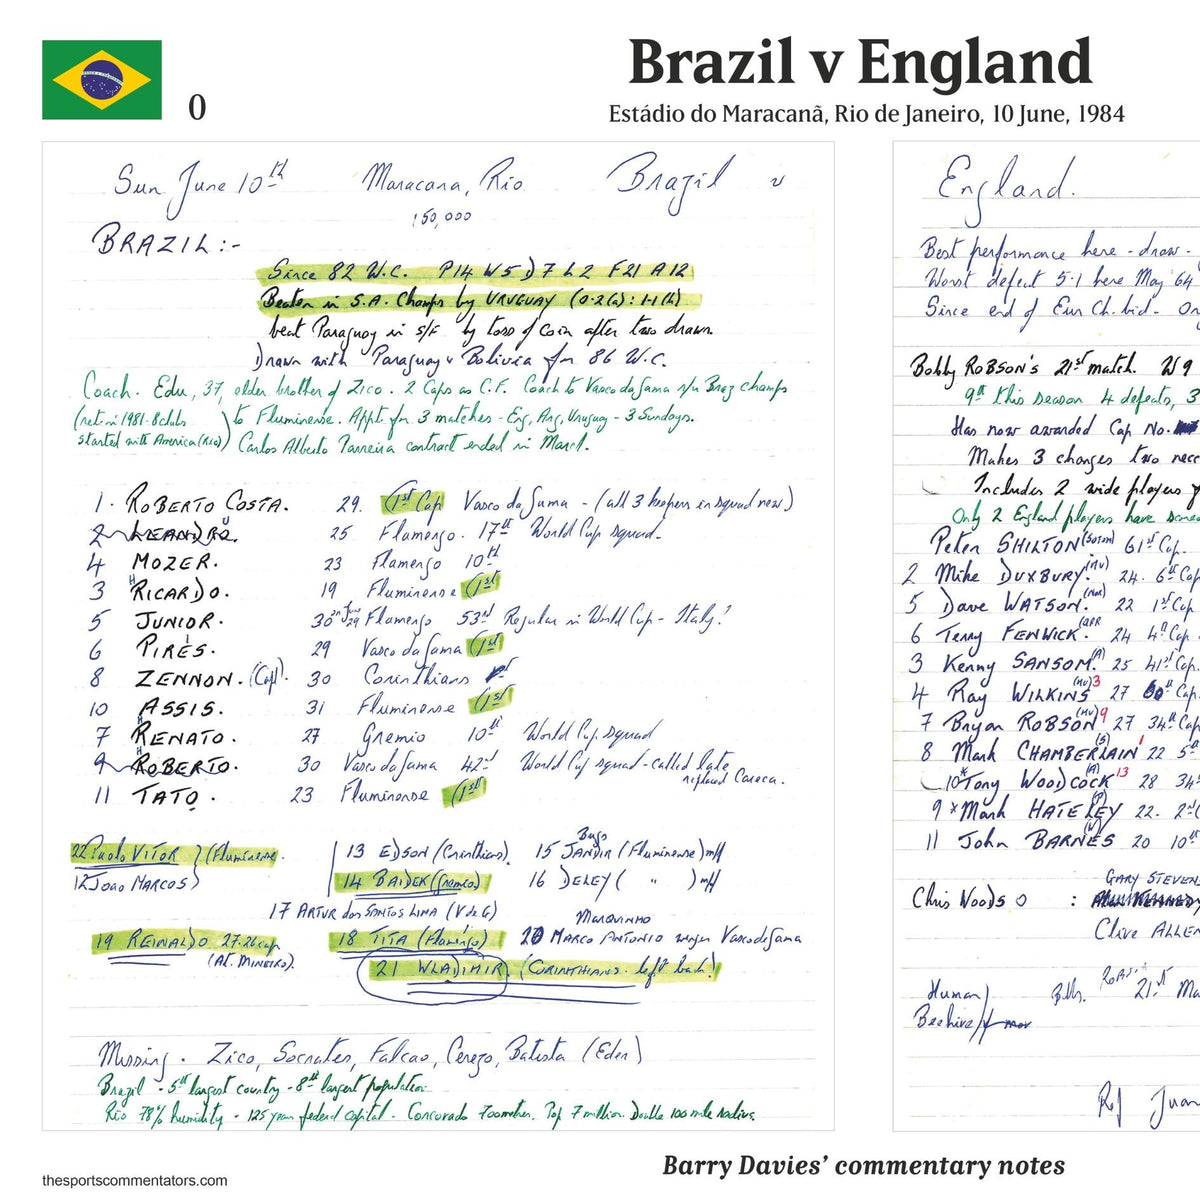 0
Brazil v England
Estádio do Maracanã, Rio de Janeiro, 10 June, 1984
Sun June 10th Maracana, Rio Brazil v
150,000
BRAZIL:-
Since 82 W.C. P14 W5 D7 L2 F21 A12
Beaten in S.A. Champs by URUGUAY (0-2(a): 1-1(h)
beat Paraguay in S/F by toss of Coin after two drawn.
Drawn with Paraguay & Bolivia for 86 W.C.
Coach. Edu, 37, elder brother of Zico. 2 Caps as C.F. Coach to Vasco da Gama r/u Braz champs
(ret. in 1981 - 8 clubs to Fluminense. Appt. for 3 matches - Eng, Arg, Uruguay - 3 Sundays.
started with America (Rio)) Carlos Alberto Parreira contract ended in March.
1. ROBERTO COSTA. 29. (1st Cap Vasco da Gama - (all 3 keepers in squad now)
2 LEANDRO. 25 Flamengo. 17th World Cup squad.
4 MOZER. 23 Flamengo 10th
3 RICARDO. 19 Fluminense (1st
5 JUNIOR. 30 Flamengo 53rd Regular in World Cup - Italy?
6 PIRES. 29 Vasco da Gama (1st
8 ZENNON. (Capt). 30 Corinthians
10 ASSIS. 31 Fluminense (1st
7 RENATO. 27 Gremio 10th World Cup squad
9 ROBERTO. 30 Vasco da Gama 42nd World Cup squad - called late
replaced Careca.
11 TATO. 23 Fluminense (1st
22 Paulo VITOR } (Fluminense. 13 EDSON (Corinthians). 15 JANDIR (Fluminense) mf
12 Joao MARCOS 14 BAIDEK (Gremio) 16 DELEY ( " ) mf
17 ARTUR dos SANTOS LIMA (V de G)
Marquinho
19 REINALDO 27. 26 cap 18 TITA (Flamengo) 20 MARCO ANTONIO winger Vasco da Gama
(At. MINEIRO).
21 WLADIMIR. (CORINTHIANS. left back!)
Missing. Zico, Socrates, Falcao, Cerezo, Batista (Eder)
Brazil - 5th largest country - 8th largest population.
Rio 78% humidity - 125 years federal capital - Corcovado 700 metres. Pop 7 million. Double 100 mile radius.
England.
Best performance here - draw -
Worst defeat 5-1 here May '64
Since end of Eur Ch. bid. On
Bobby ROBSON'S 21st match. W9
9th this season 4 defeats, 3
Has now awarded Cap No.
Makes 3 changes two nece
Includes 2 wide players
Only 2 England players have score
Peter SHILTON (Soton) 61st Cap.
2 Mike DUXBURY. (MU) 24. 6th Cap
5 Dave WATSON. (Nor) 22 1st Cap
6 Terry FENWICK. (QPR 24 4th Cap.
3 Kenny SANSOM. (A) 25 41st Cap.
4 Ray WILKINS (MU) 3 27 60th Cap.
7 Bryan ROBSON (MU) 9 27 34th Cap
8 Mark CHAMBERLAIN (S) 1 22 5th
10* Tony WOODCOCK (A) 13 28 34th
9 * Mark HATELEY (P) 22. 2nd
11 John BARNES (W) 20 10th
GARY STEVENS
Chris Woods O :
Clive ALLEN
Human) 21st Ma
Beehive
Ref Juan
thesportscommentators.com
Barry Davies’ commentary notes